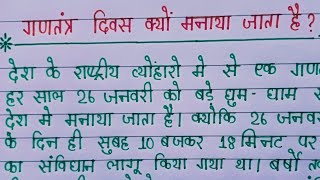 गणतंत्र दिवस क्यों मनाया जाता है ?
देश के राष्ट्रीय त्योंहारो मे से एक गण
हर साल 26 जनवरी को बड़े धुम - धाम से
देश मे मनाया जाता है। क्योकि 26 जनव
के दिन ही सुबह 10 बजकर 18 मिनट पर
का संविधान लागू किया गया था। बर्षो तक